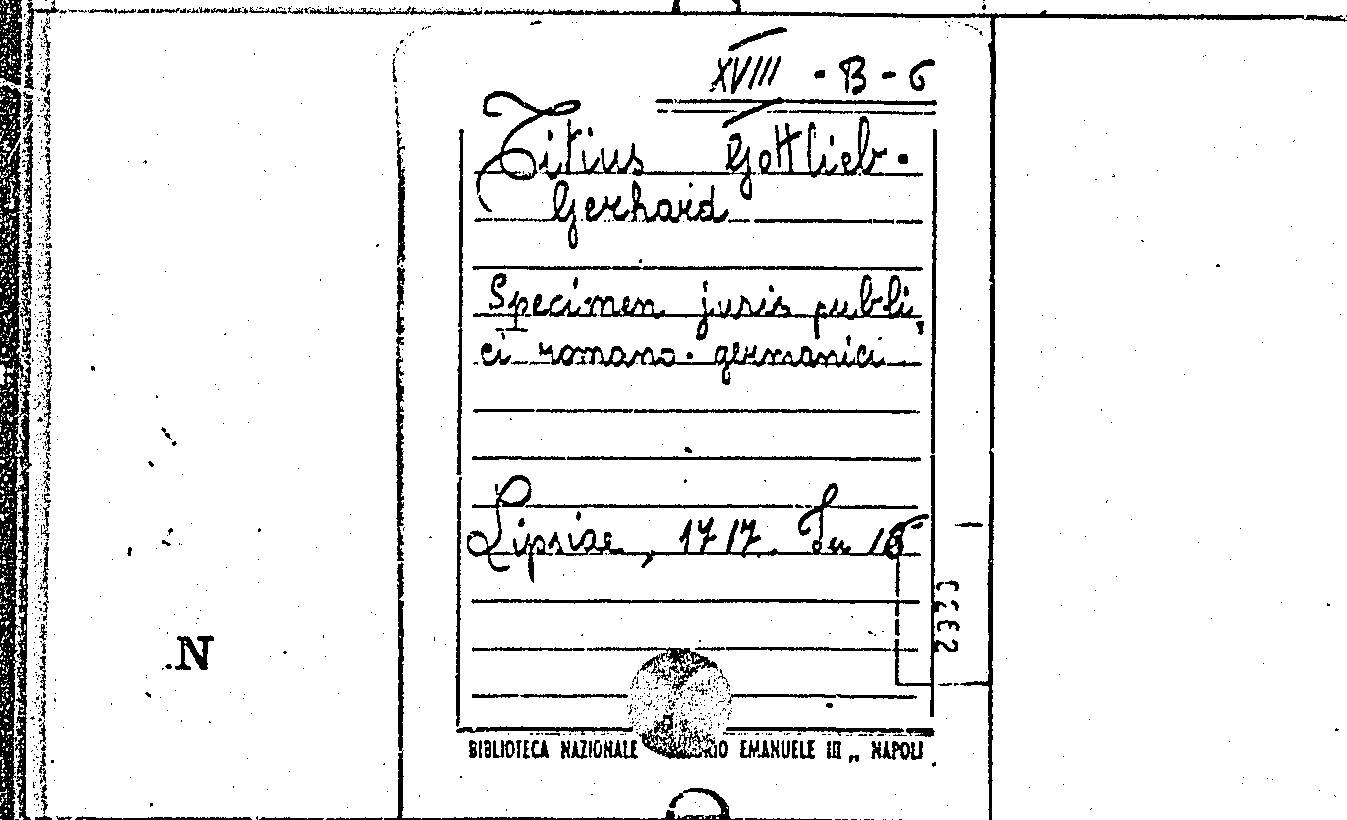 XVIII - B - 6
Titius Gottlieb -
Gerhard
Specimen juris publi,
ci romano - germanici
Lipsiae, 1717. In
BIBLIOTECA NAZIONALE EMANUELE III „ NAPOLI
.N